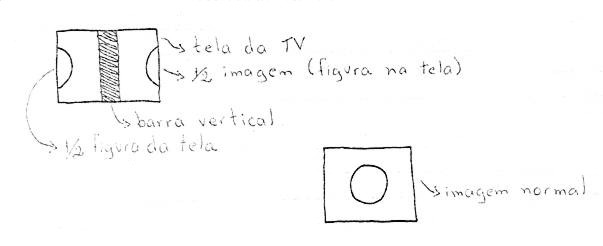 tela da TV
1/2 imagem (figura na tela)
barra vertical
1/2 figura da tela
imagem normal